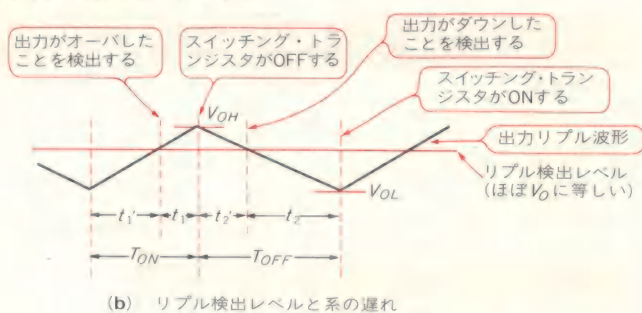 出力がオーバした
ことを検出する
スイッチング・トラ
ンジスタがOFFする
出力がダウンした
ことを検出する
スイッチング・トラン
ジスタがONする
V_OH
出力リプル波形
リプル検出レベル
(ほぼV_Oに等しい)
V_OL
t_1' t_1 t_2' t_2
T_ON T_OFF
(b) リプル検出レベルと系の遅れ